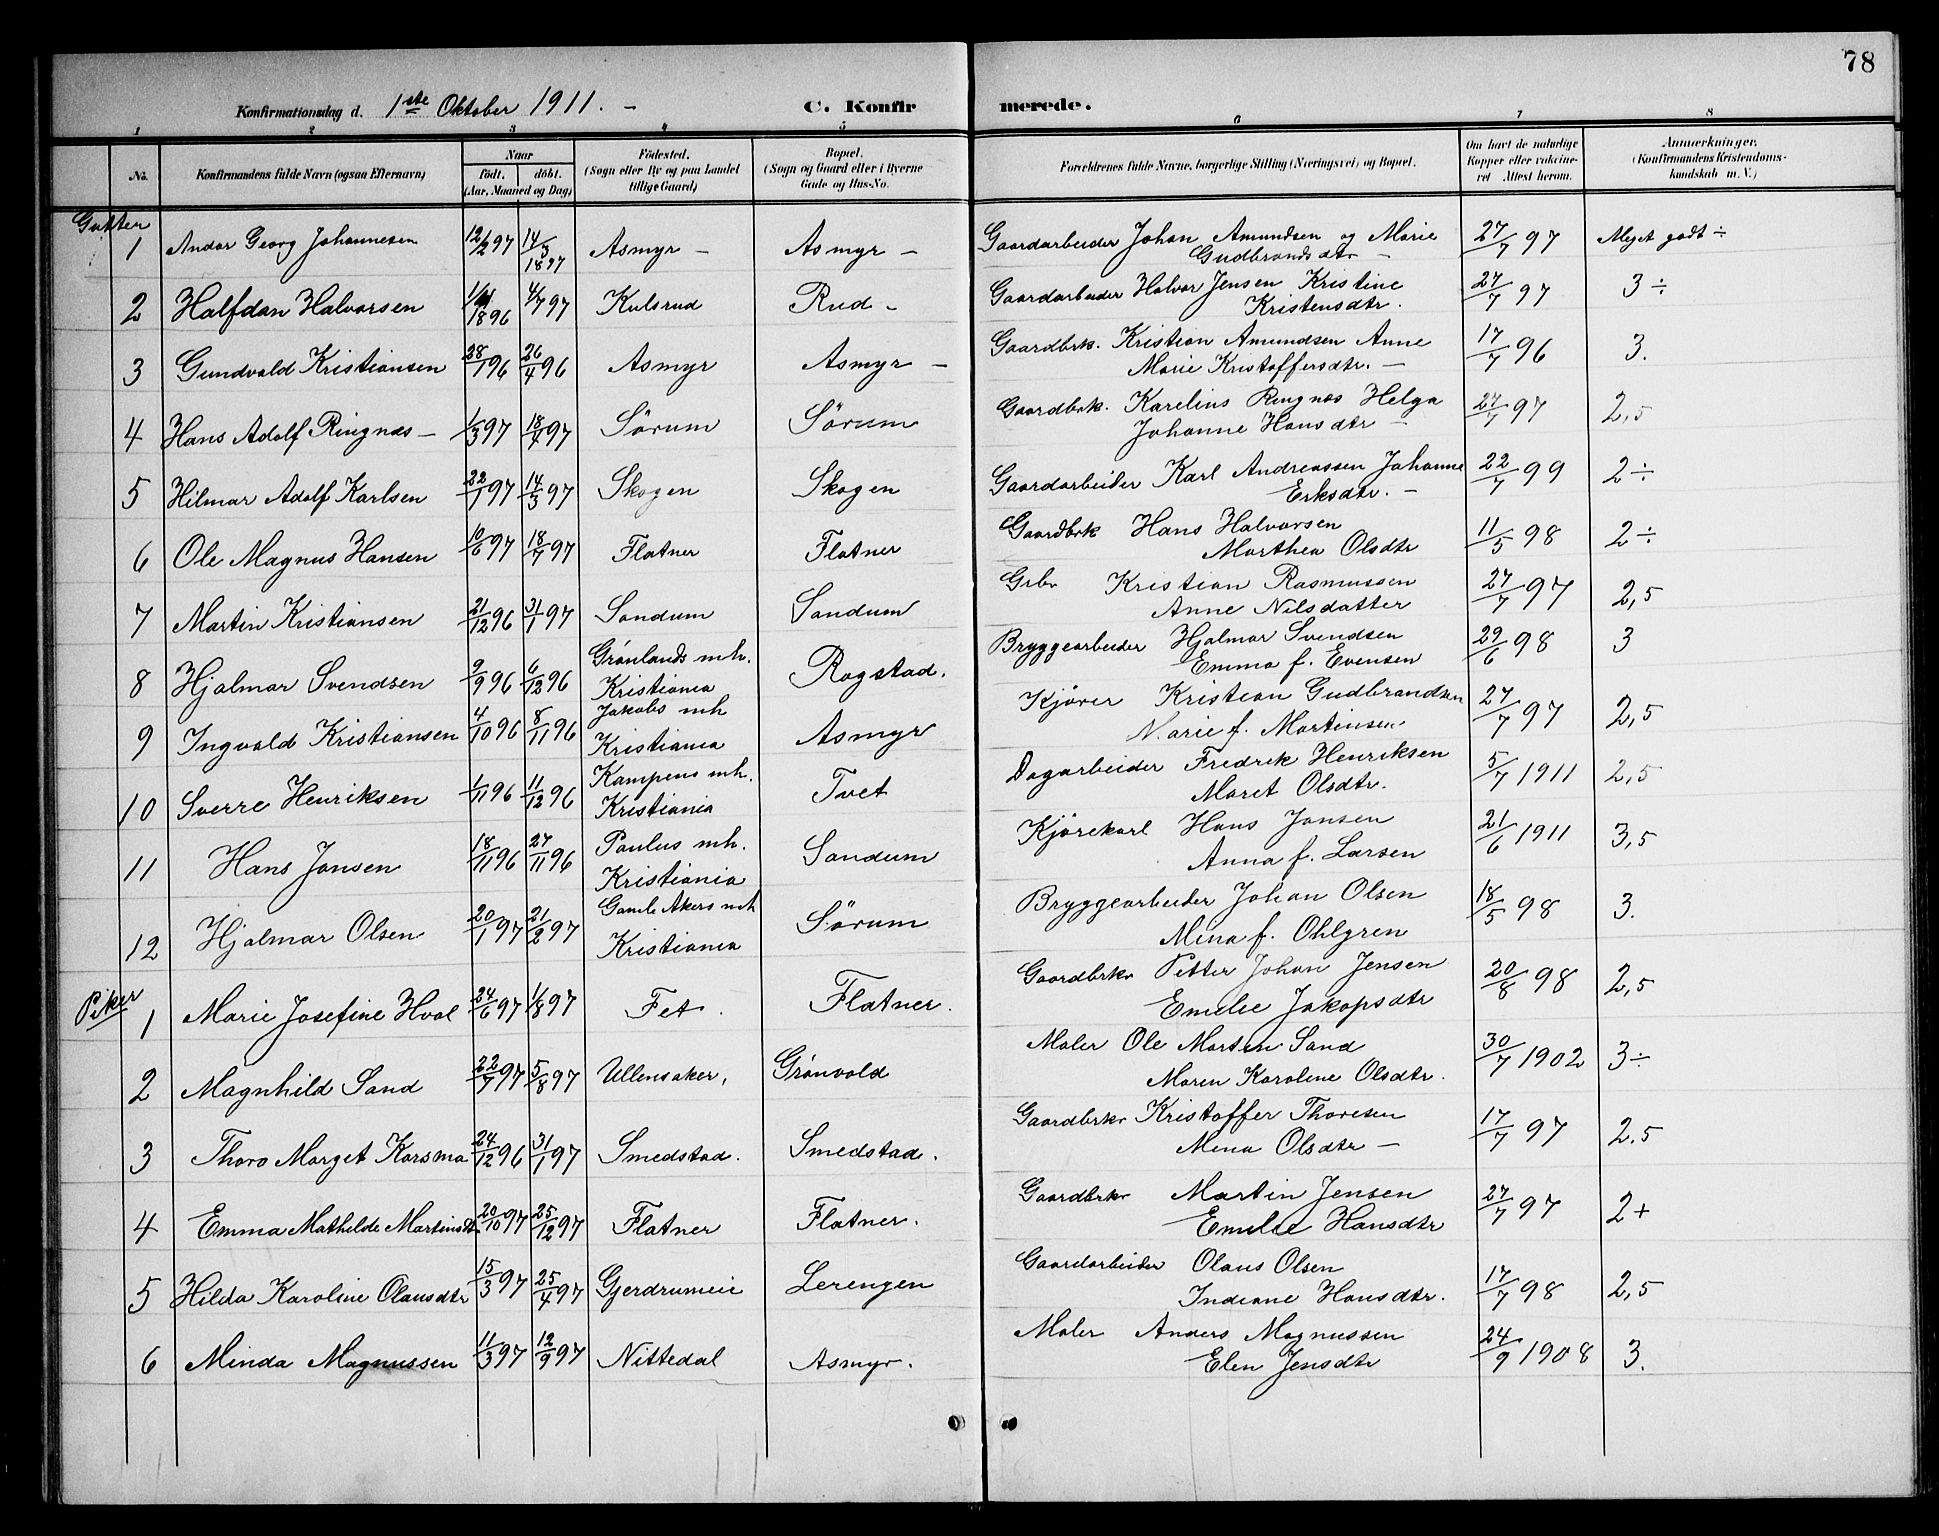 78
Konfirmationsdag d. 1ste Oktober 1911. - C. Konfirmerede.
1 2 3 4 5 6 7 8
No. Konfirmandens fulde Navn (ogsaa Efternavn) Naar født. døbt. (Aar, Maaned og Dag) Fødested. (Sogn eller By og paa Landet tillige Gaard) Bopæl. (Sogn og Gaard eller i Byerne Gade og Hus-No. Forældrenes fulde Navne, borgerlige Stilling (Næringsvei) og Bopæl. Om havt de naturlige Kopper eller vaksineret Attest herom. Anmærkninger. (Konfirmandens Kristendomskundskab m. V.)
Gutter
1 Andor Georg Johannesen 12/2 97 14/3 1897 Asmyr - Asmyr - Gaardarbeider Johan Amundsen og Marie 27/7 97 Meget godt ÷
Gudbrandsdtr -
2 Halfdan Halvorsen 1896 4/7 97 Kulsrud Rud - Gaardarbeider Halvor Jensen Kristine 27/7 97 3 ÷
Kristensdtr.
3 Gundvald Kristiansen 28/1 96 26/4 96 Asmyr Asmyr - Gaardbrk. Kristian Amundsen Anne 17/7 96 3.
Marie Kristoffersdtr. -
4 Hans Adolf Ringnæs - 1/3 97 18/4 97 Sörum Sörum Gaardbrk. Karelius Ringnæs Helga 27/7 97 2,5
Johanne Hansdtr -
5 Hilmar Adolf Karlsen 22/1 97 14/3 97 Skogen Skogen Gaardarbeider Karl Andreassen Johanne 22/7 99 2 ÷
Eriksdtr. -
6 Ole Magnus Hansen 10/6 97 18/7 97 Flatner Flatner Gaardbrk Hans Halvorsen 11/5 98 2 ÷
Marthea Olsdtr
7 Martin Kristiansen 21/12 96 31/1 97 Sandum Sandum Grbr Kristian Rasmussen 27/7 97 2,5
Anne Nilsdatter
8 Hjalmar Svendsen 9/9 96 6/12 96 Grønlands mh. Kristiania Rogstad. Bryggearbeider Hjalmar Svendsen 29/6 98 3
Emma f. Evensen
9 Ingvald Kristiansen 4/10 96 8/11 96 Jakobs mh Kristiania Asmyr Kjörer Kristian Gudbrandsen 27/7 97 2,5
Marie f. Martinsen
10 Sverre Henriksen 1/11 96 11/12 96 Kampens mh. Kristiania Tvet Dagarbeider Fredrik Henriksen 5/7 1911 2,5
Maret Olsdtr.
11 Hans Jansen 18/11 96 27/11 96 Paulus mh. Kristiania Sandum Kjörekarl Hans Jansen 21/6 1911 3,5
Anna f. Larsen
12 Hjalmar Olsen 20/1 97 21/2 97 Gamle Akers mh Kristiania Sörum Bryggearbeider Johan Olsen 18/5 98 3.
Mina f. Ohlgren
Piker
1 Marie Josefine Hval 24/6 97 1/8 97 Fet. Flatner. Gaardbrkr Petter Johan Jensen 20/8 98 2,5
Emelie Jakopsdtr
2 Magnhild Sand 22/7 97 5/8 97 Ullensaker, Grönvold Maler Ole Martin Sand 30/7 1902 3 ÷
Maren Karoline Olsdtr.
3 Thora Marget Korsmo 24/12 96 31/1 97 Smedstad. Smedstad. Gaardbrkr Kristoffer Thoresen 17/7 97 2.5
Mina Olsdtr -
4 Emma Mathilde Martinsdtr 20/10 97 25/12 97 Flatner Flatner. Gaardbrkr Martin Jensen 27/7 97 2+
Emelie Hansdtr
5 Hilda Karoline Olausdtr 15/3 97 25/4 97 Gjerdrumeie Lerengen Gaardarbeider Olaus Olsen 17/7 98 2,5
Indiane Hansdtr.
6 Minda Magnussen 11/3 97 12/9 97 Nittedal Asmyr. Maler Anders Magnussen 24/9 1908 3.
Elen Jensdtr